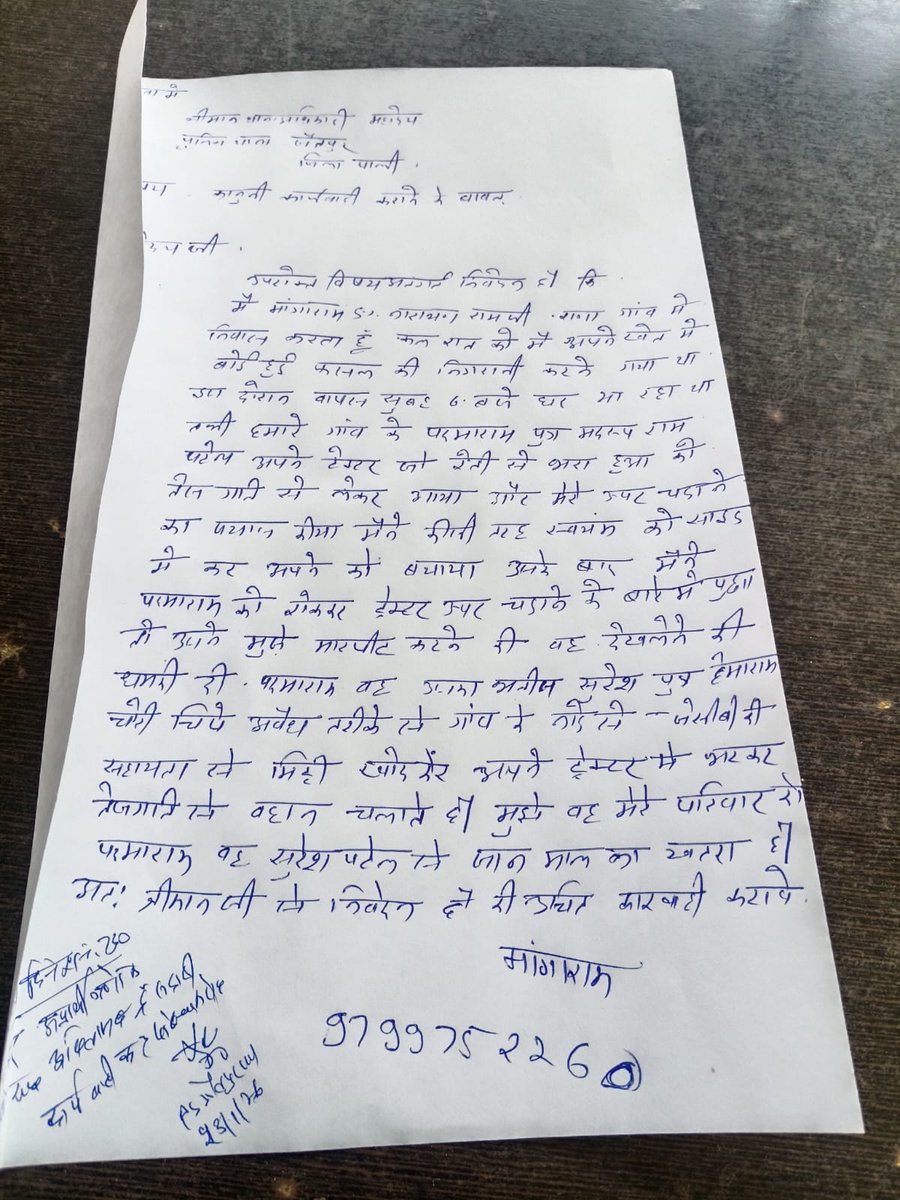 वा मे
श्रीमान थानाअधिकारी महोदय
पुलिस थाना जैतपुर
जिला पाली.
षय . कानुनी कार्यवाही कराने के बाबत्
होदय जी .
उपरोक्त विषय अन्तर्गत निवेदन है कि
मै मांगाराम S/o. नारायण रामजी . गांव मे
निवास करता हूं कल रात को मै अपने खेत मे
बोई हुई फसल की निगरानी करने गया था
उस दौरान वापस सुबह 6. बजे घर आ रहा था
तभी हमारे गांव के परमाराम पुत्र राम
पटेल अपने टेक्टर जो रेती से भरा हुआ को
तेज गति से लेकर आया और मेरे उपर चडाने
का प्रयास कीया मैने कीसी तरह स्वयंम को साइड
मे कर अपने को बचाया उसके बाद मैने
परमाराम को रोककर ट्रेक्टर उपर चडाने के बारे मे पुछा
तो उसने मुझे मारपीट करने की वह देखलेने की
धमकी दी . परमाराम वह उसका सुरेश पुत्र हेमाराम
चोरी चिपे अवैध तरीके से गांव के से जेसीबी की
सहायता से मिट्टी खोद अपने ट्रेक्टर मे भरकर
तेजगति से वहान चलाते है। मुझे वह मेरे परिवार को
परमाराम वह सुरेश पटेल से जान माल का खतरा है।
अत: श्रीमान जी से निवेदन है की उचित कारवाही करावे.
मांगाराम
9799752260
कार्यवाही कर
23/1/26